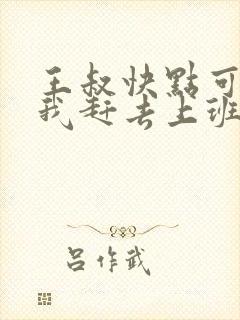 王叔快點可
我赶去上班
吕作武